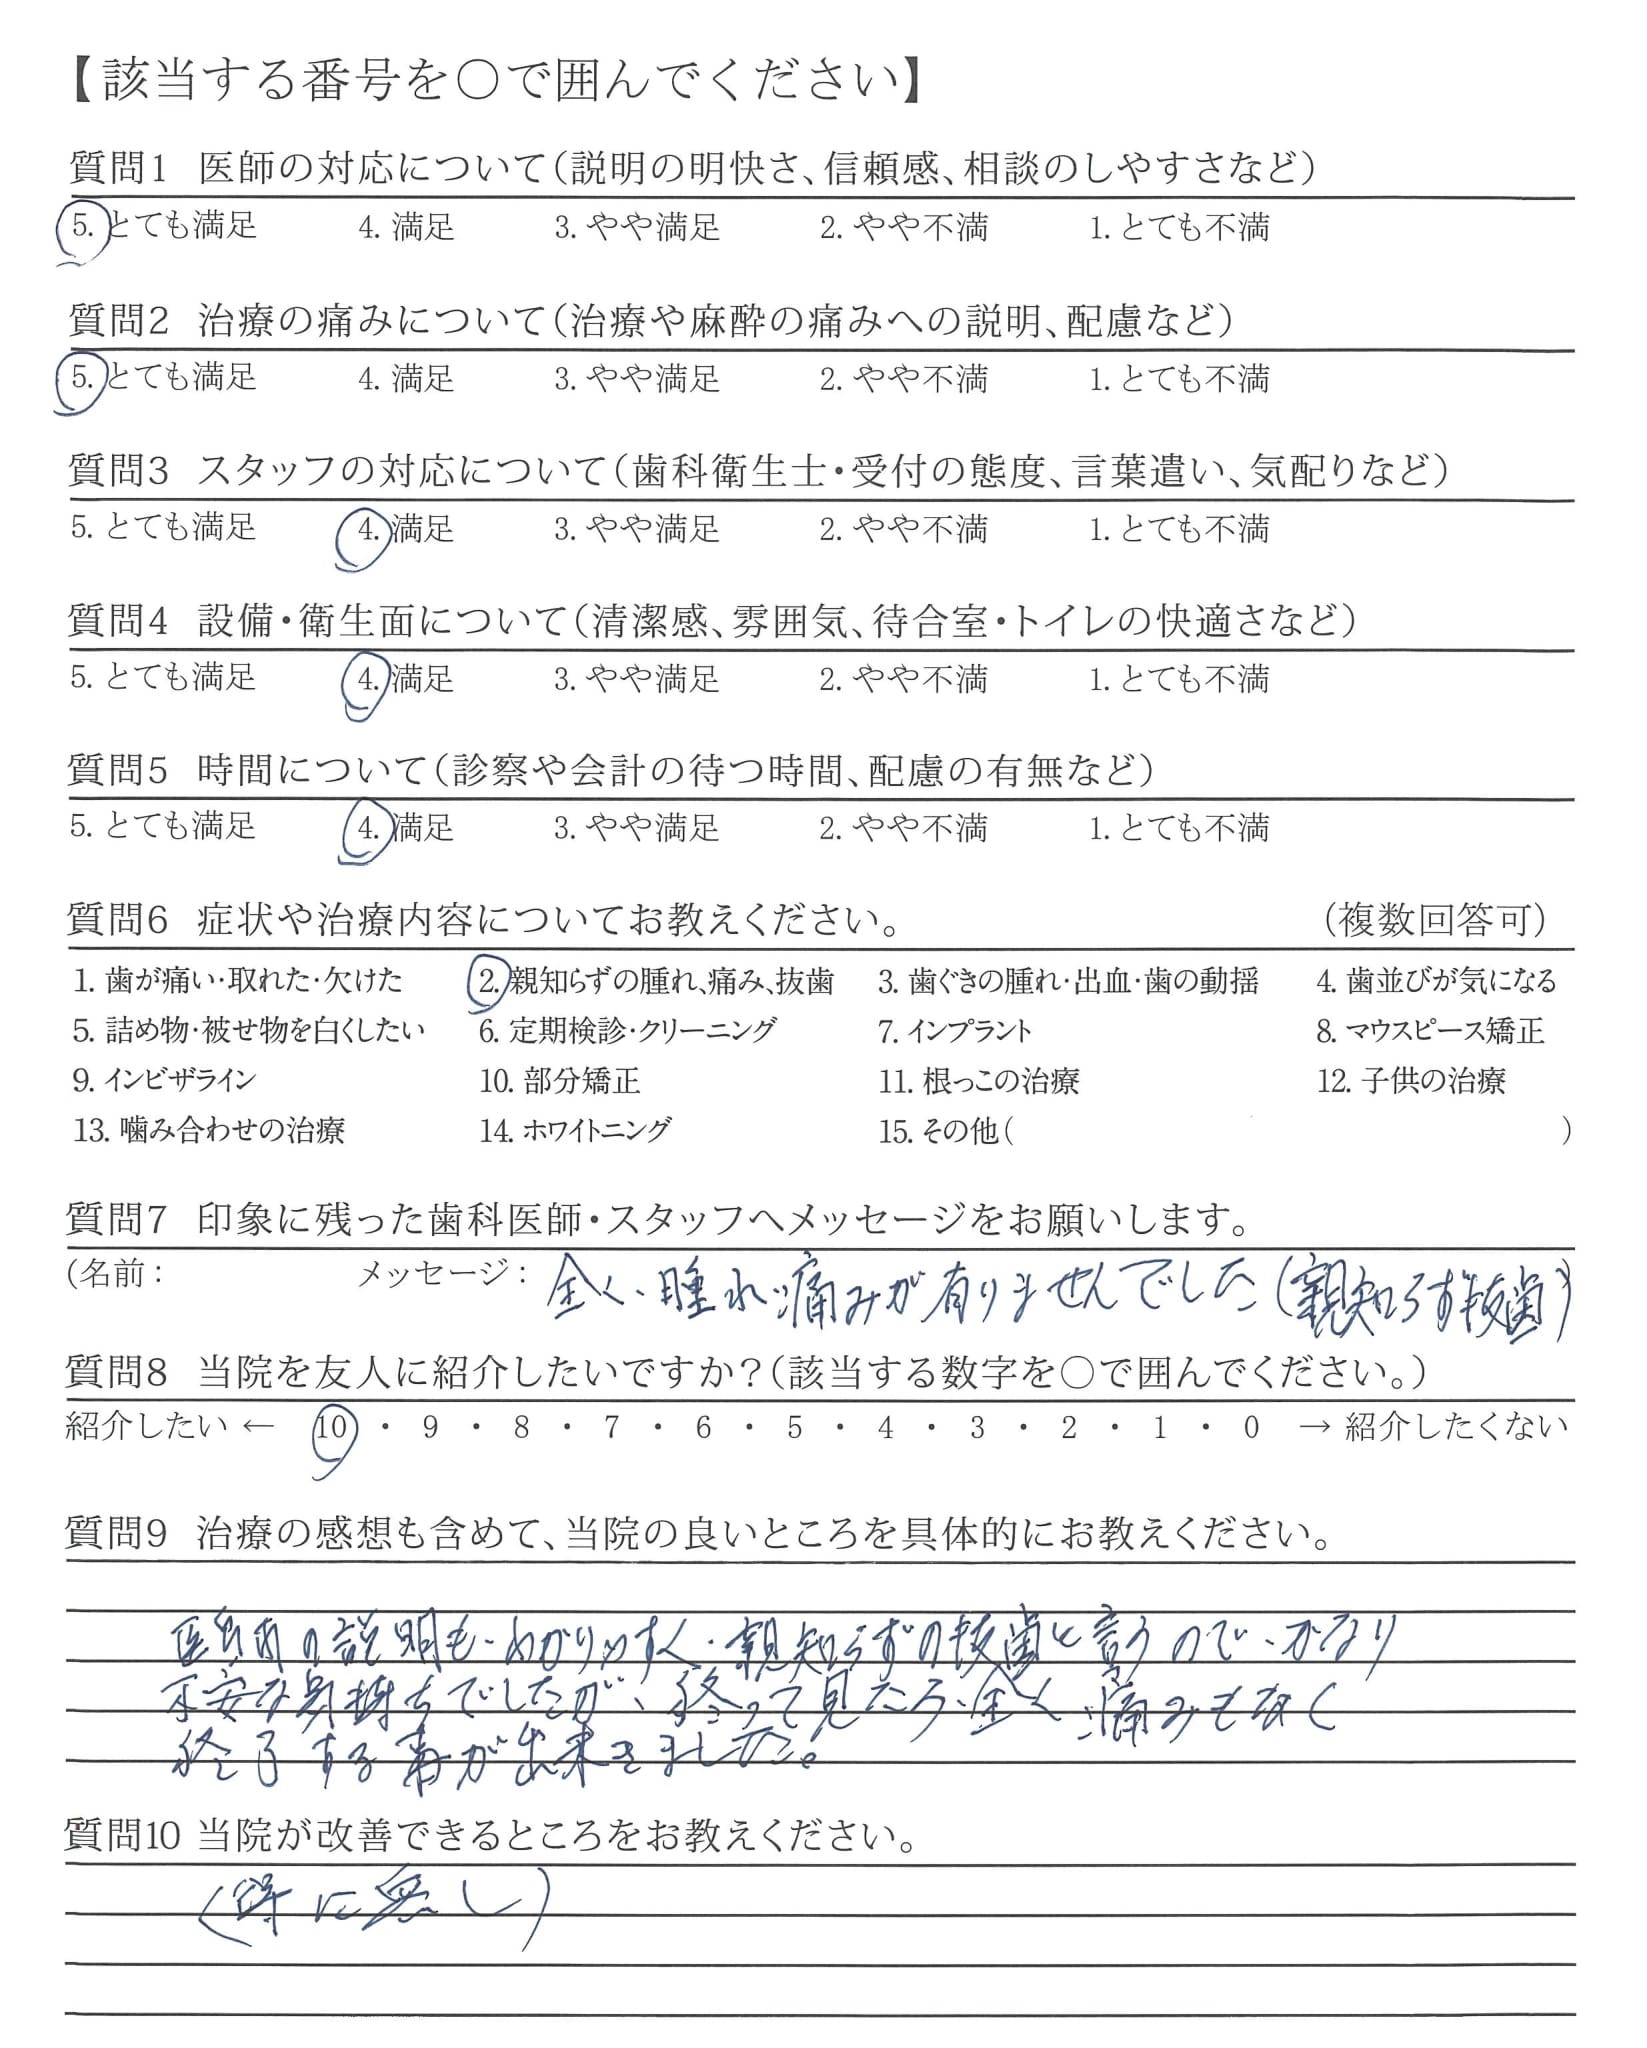 【該当する番号を○で囲んでください】
質問1 医師の対応について(説明の明快さ、信頼感、相談のしやすさなど)
5. とても満足 4. 満足 3. やや満足 2. やや不満 1. とても不満
質問2 治療の痛みについて(治療や麻酔の痛みへの説明、配慮など)
5. とても満足 4. 満足 3. やや満足 2. やや不満 1. とても不満
質問3 スタッフの対応について(歯科衛生士・受付の態度、言葉遣い、気配りなど)
5. とても満足 4. 満足 3. やや満足 2. やや不満 1. とても不満
質問4 設備・衛生面について(清潔感、雰囲気、待合室・トイレの快適さなど)
5. とても満足 4. 満足 3. やや満足 2. やや不満 1. とても不満
質問5 時間について(診察や会計の待つ時間、配慮の有無など)
5. とても満足 4. 満足 3. やや満足 2. やや不満 1. とても不満
質問6 症状や治療内容についてお教えください。 (複数回答可)
1. 歯が痛い・取れた・欠けた 2. 親知らずの腫れ、痛み、抜歯 3. 歯ぐきの腫れ・出血・歯の動揺 4. 歯並びが気になる
5. 詰め物・被せ物を白くしたい 6. 定期検診・クリーニング 7. インプラント 8. マウスピース矯正
9. インビザライン 10. 部分矯正 11. 根っこの治療 12. 子供の治療
13. 噛み合わせの治療 14. ホワイトニング 15. その他( )
質問7 印象に残った歯科医師・スタッフへメッセージをお願いします。
(名前: メッセージ: 全く、腫れ、痛みが有りませんでした(親知らず抜歯)
質問8 当院を友人に紹介したいですか?(該当する数字を○で囲んでください。)
紹介したい ← 10 ・ 9 ・ 8 ・ 7 ・ 6 ・ 5 ・ 4 ・ 3 ・ 2 ・ 1 ・ 0 → 紹介したくない
質問9 治療の感想も含めて、当院の良いところを具体的にお教えください。
医師の説明も、わかりやすく、親知らずの抜歯と言うので、かなり
不安な気持ちでしたが、終って見たら、全く、痛みもなく
終了する事が出来きました。
質問10 当院が改善できるところをお教えください。
(特に無し)